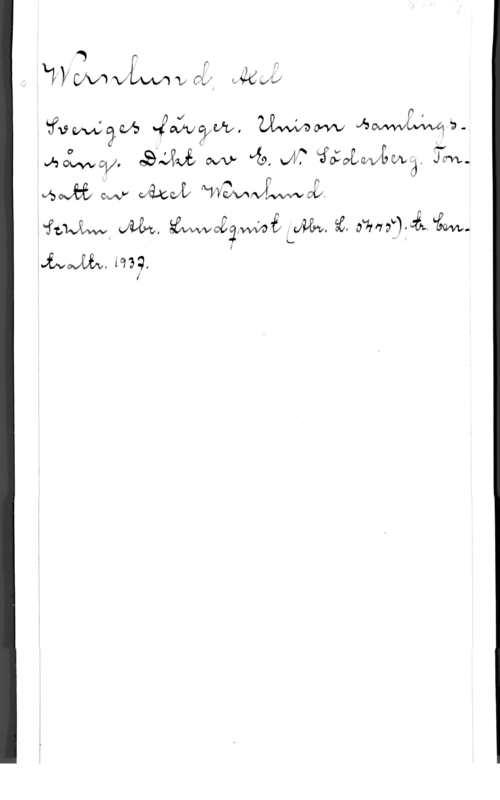 Wernlund, Axel
Sveriges färger. Unison samlings-
sång. Dikt av E. N. Söderberg. Ton-
satt av Axel Wernlund.
Sthlm, Abr. Lundquist (Abr. L. 5775). tr. Cen-
traltr. 1937.